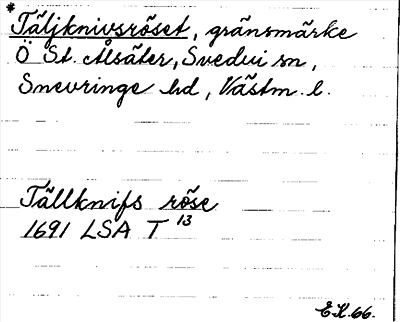 *Täljknivsröset, gränsmärke
Ö St. Ålsäter, Svedvi sn,
Snevringe hd, Västm. l.
Tällknifs röse
1691 LSA T 13
E.K. 66.